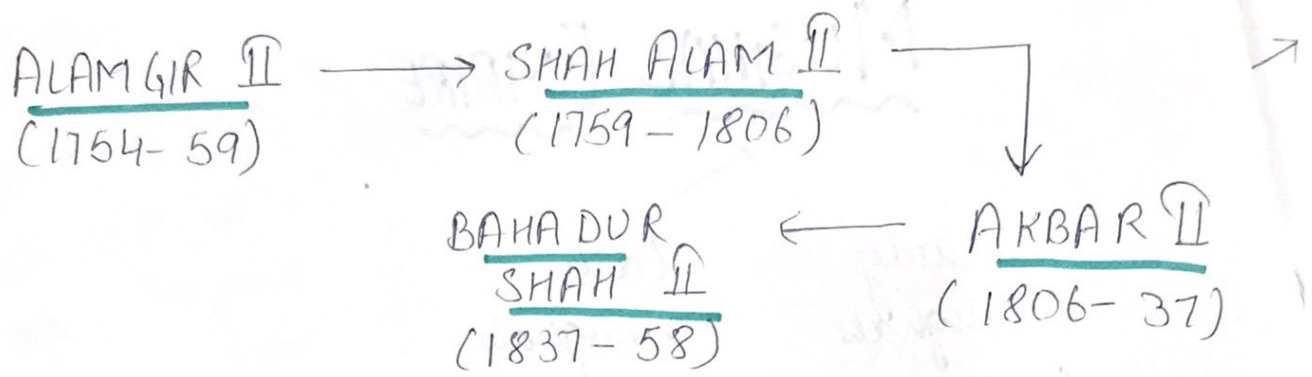 ALAMGIR II → SHAH ALAM II
(1754-59) (1759-1806)
AKBAR II
(1806-37)
BAHADUR
SHAH II
(1837-58)